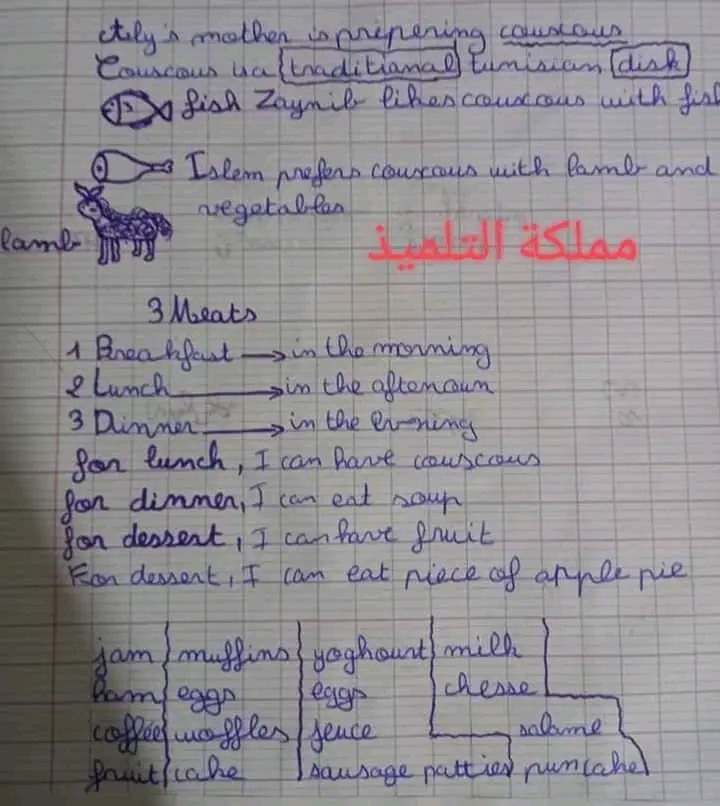 Aly's mother is prepering couscous
Couscous is a traditional tunisian dish
fish Zaynib likes couscous with fish
Islem prefers couscous with lamb and
vegetables
lamb
مملكة التلميذ
3 Meats
1 Breakfast → in the morning
2 Lunch → in the afternoun
3 Dinner → in the evening
for lunch, I can have couscous
for dinner, I can eat soup
for dessert, I can have fruit
For dessert, I can eat piece of apple pie
jam muffins yoghourt milk
ham eggs eggs chesse
coffée woffles jeuce salame
fruit cake sausage patties puncake